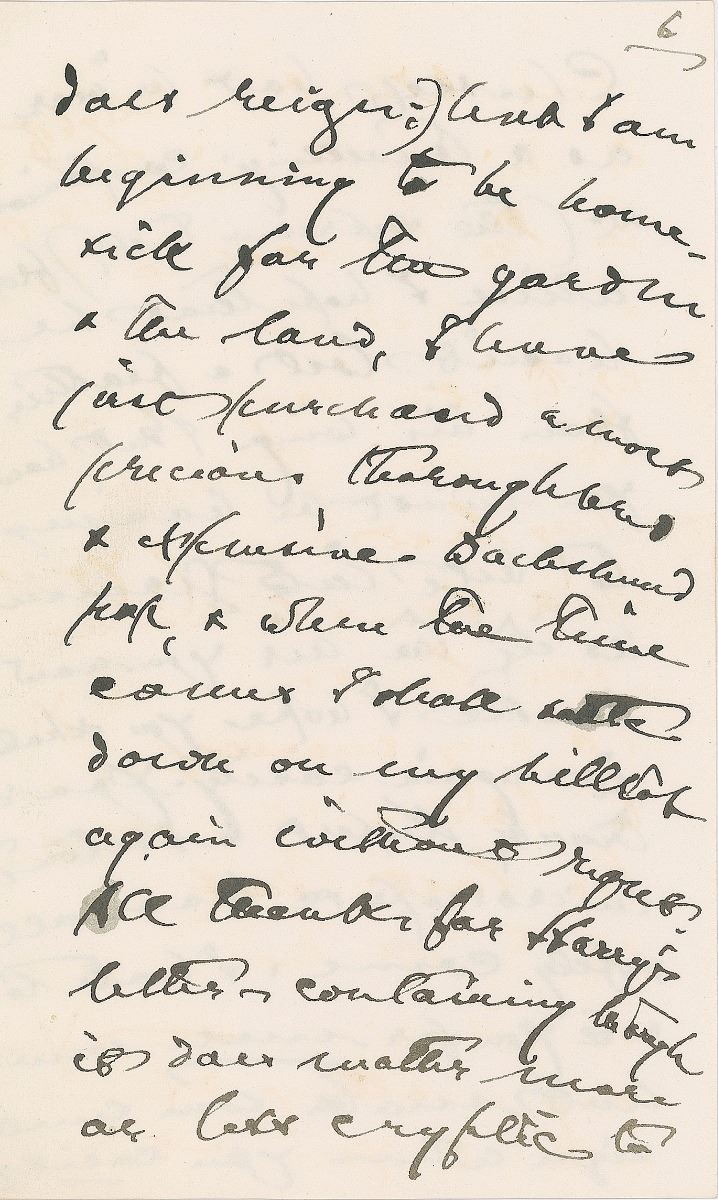 6
does reign;) but I am
beginning to be home-
sick for the garden
& the land, I have
just purchased a most
precious thoroughbred
& expensive Dachshund
pup, & when the time
comes I shall settle
down on my hilltop
again without regret.
All thanks for Harry's
letter – containing though
it does matter more
or less cryptic to